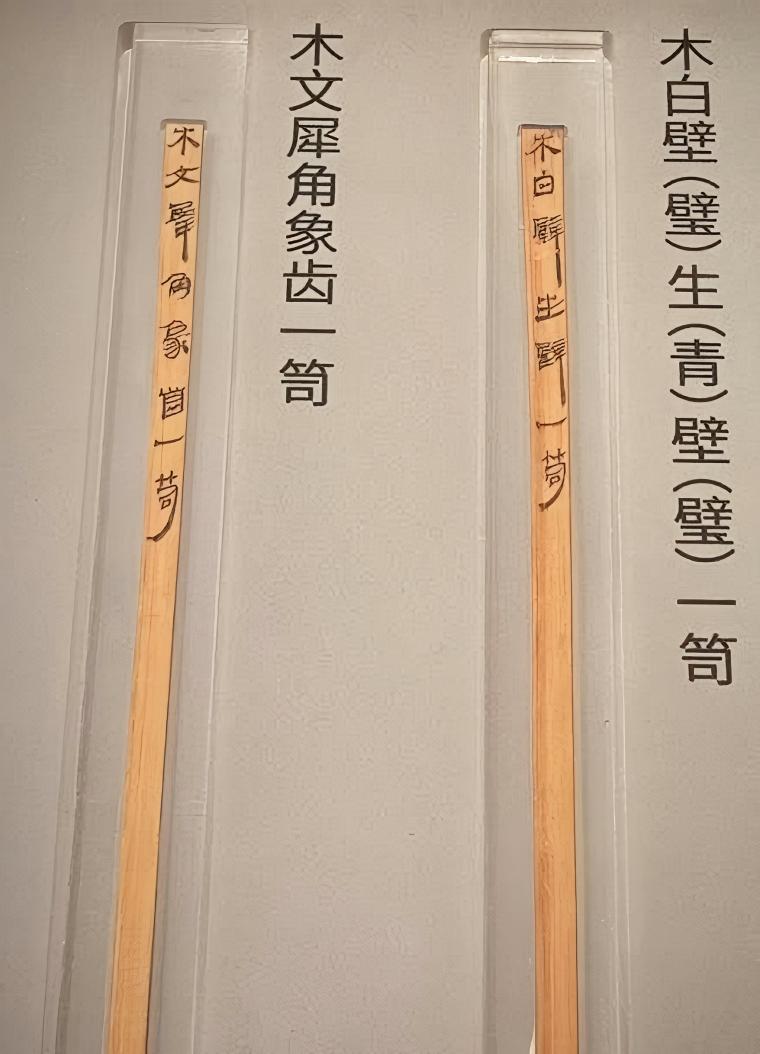 木白壁(璧)生(青)壁(璧)一笥
木白壁生壁一笥
木文犀角象齿一笥
木文犀角象齒一笥